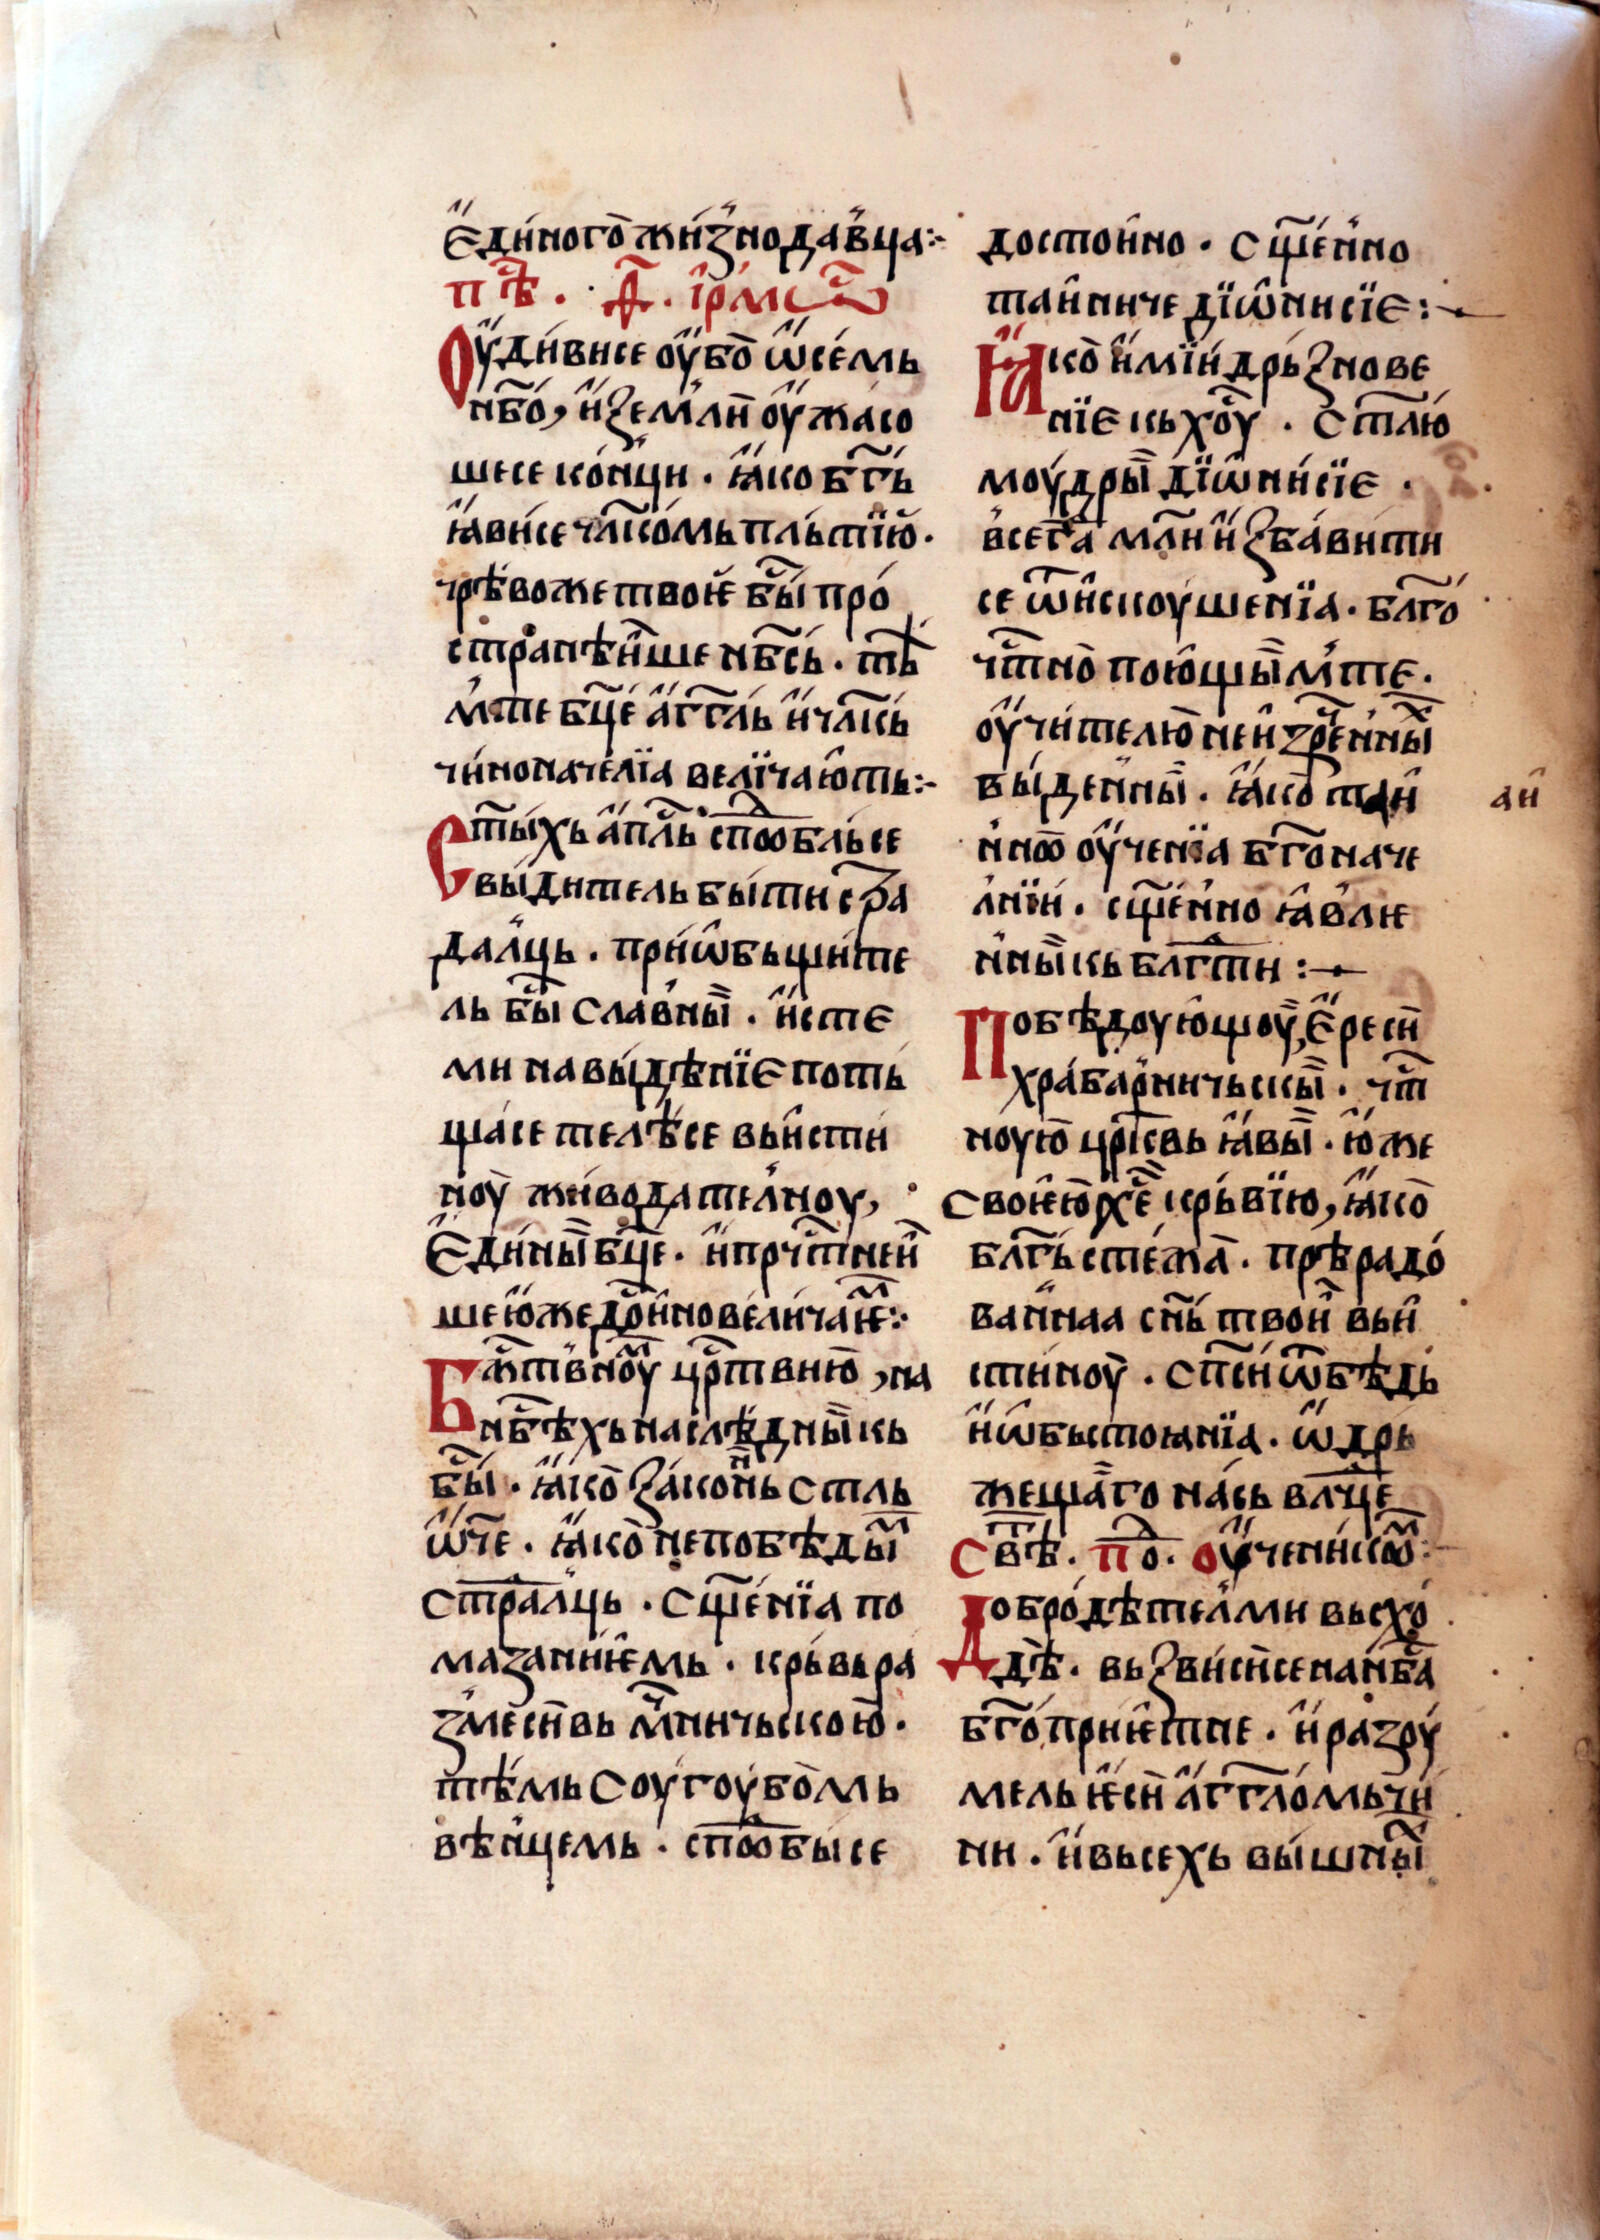 Єди́ного̀ жи́знода́вца:~
пⷭ҇ѣ. ѳ҃. і҆рмⷭ҇ѡ
Оу҆ди́висе оу҆́бо ѡ҆се́мь
нб҃о, и҆землꙗ̀ оу҆жасо
шесе ко́нци. ꙗ҆́ко бг҃ь
ꙗ҆ви́се чл҃ко́мь пль́тїю.
чрѣ́во же твоѥ̀ бы́ⷭ҇ про́
странѣ́ише нб҃сь. тѣ́
мⷤте бц҃е а҆́гг҃ль и҆чл҃кь
чи́ноначе́лїа вели́чаю҆ть:~
Ст҃ы́хь а҆́пⷭ҇ль спⷣобль́се
вы́дитель бы́ти стра
да́лць. при́ѡ҆бьщи́те
ль бы́ⷭ҇ сла́вны̏. и҆сте
ми навы́дѣнїе поть
ща́се телѣ́се вьи҆сти́
ноу̀ жи́водателноу,
Єди́ны̏ бц҃е. и҆прчⷭ҇тнеи
шею҆же дⷭ҇ои́но ве́личаѥⷨ:
Бжⷭ҇твноⷨу црⷭ҇твию̀, на
нб҃сѣхь наслѣ́дны̏кь
бы́ⷭ҇. ꙗ҆́ко̀ за́конⷩь ст҃ль
ѡ҆ч҃е. ꙗ҆́ко̀ непобѣды́ⷨ
страⷣалць. сщ҃е́нїа по
маза́ниѥмь. крь́вьра
змѣси́вь мⷱ҇нничьскою̀.
тѣ́мь соу́гоу́бомь
вѣ́нцемь. спⷣобы́се
достои́но. сщ҃е́нно
таи́нниче дїѡ҆ни́сїе:~
Ꙗ҆ко̀ и҆мїи́ дрь́знове
нїе кьхⷭ҇оу. ст҃лю́
моу́дры̏ дїѡ҆ни́сїе.
всегⷣа мл҃и и҆зба́вити
се ѿи҆скоуше́нїа. бл҃го́
чⷭ҇тно̀ пою҆щы̏мⷤте.
оу҆чи́телю̀ неи҆зрⷱ҇е́нны̏ⷯ
вы́денны̏. ꙗ҆́ко̀ таи҆
нноⷨ оу҆че́нїа бг҃оначе
лнїи́. сщ҃е́нно ꙗ҆влѥ
нны̏кь блгⷣти:~
аи҆
Побѣ́доую҆щоу̏, Єреси̏
хра́барничьскы̏. чⷭ҇т
ноую̀ цр҃ковь ꙗ҆вы̏. ю҆же
своѥ҆ю̀ хⷭ҇е крь́вїю, ꙗ҆́ко̀
бл҃гь сте́жа̏. прѣрадо́
ваннаа сн҃ь твои҆̀ вьи҆
сти́ноу̀. сп҃си́ ѿбѣ́дь
и҆ѡ҆бьстоꙗ́нїа. ѡ҆дрь
жеща̏го на́сь влⷣце
свⷮѣ. поⷣ. оу҆чени́коⷨ:~
Добро́дѣтелми вьсхо́
дѣ̀. вь́зви́си̏се нанб҃са
бг҃опри́ѥтне. и҆разроу́
мель ѥ҆си̏ а҆́гг҃ло́мь чи́
ни. и҆вьсехь вы́шны̏ⷯ